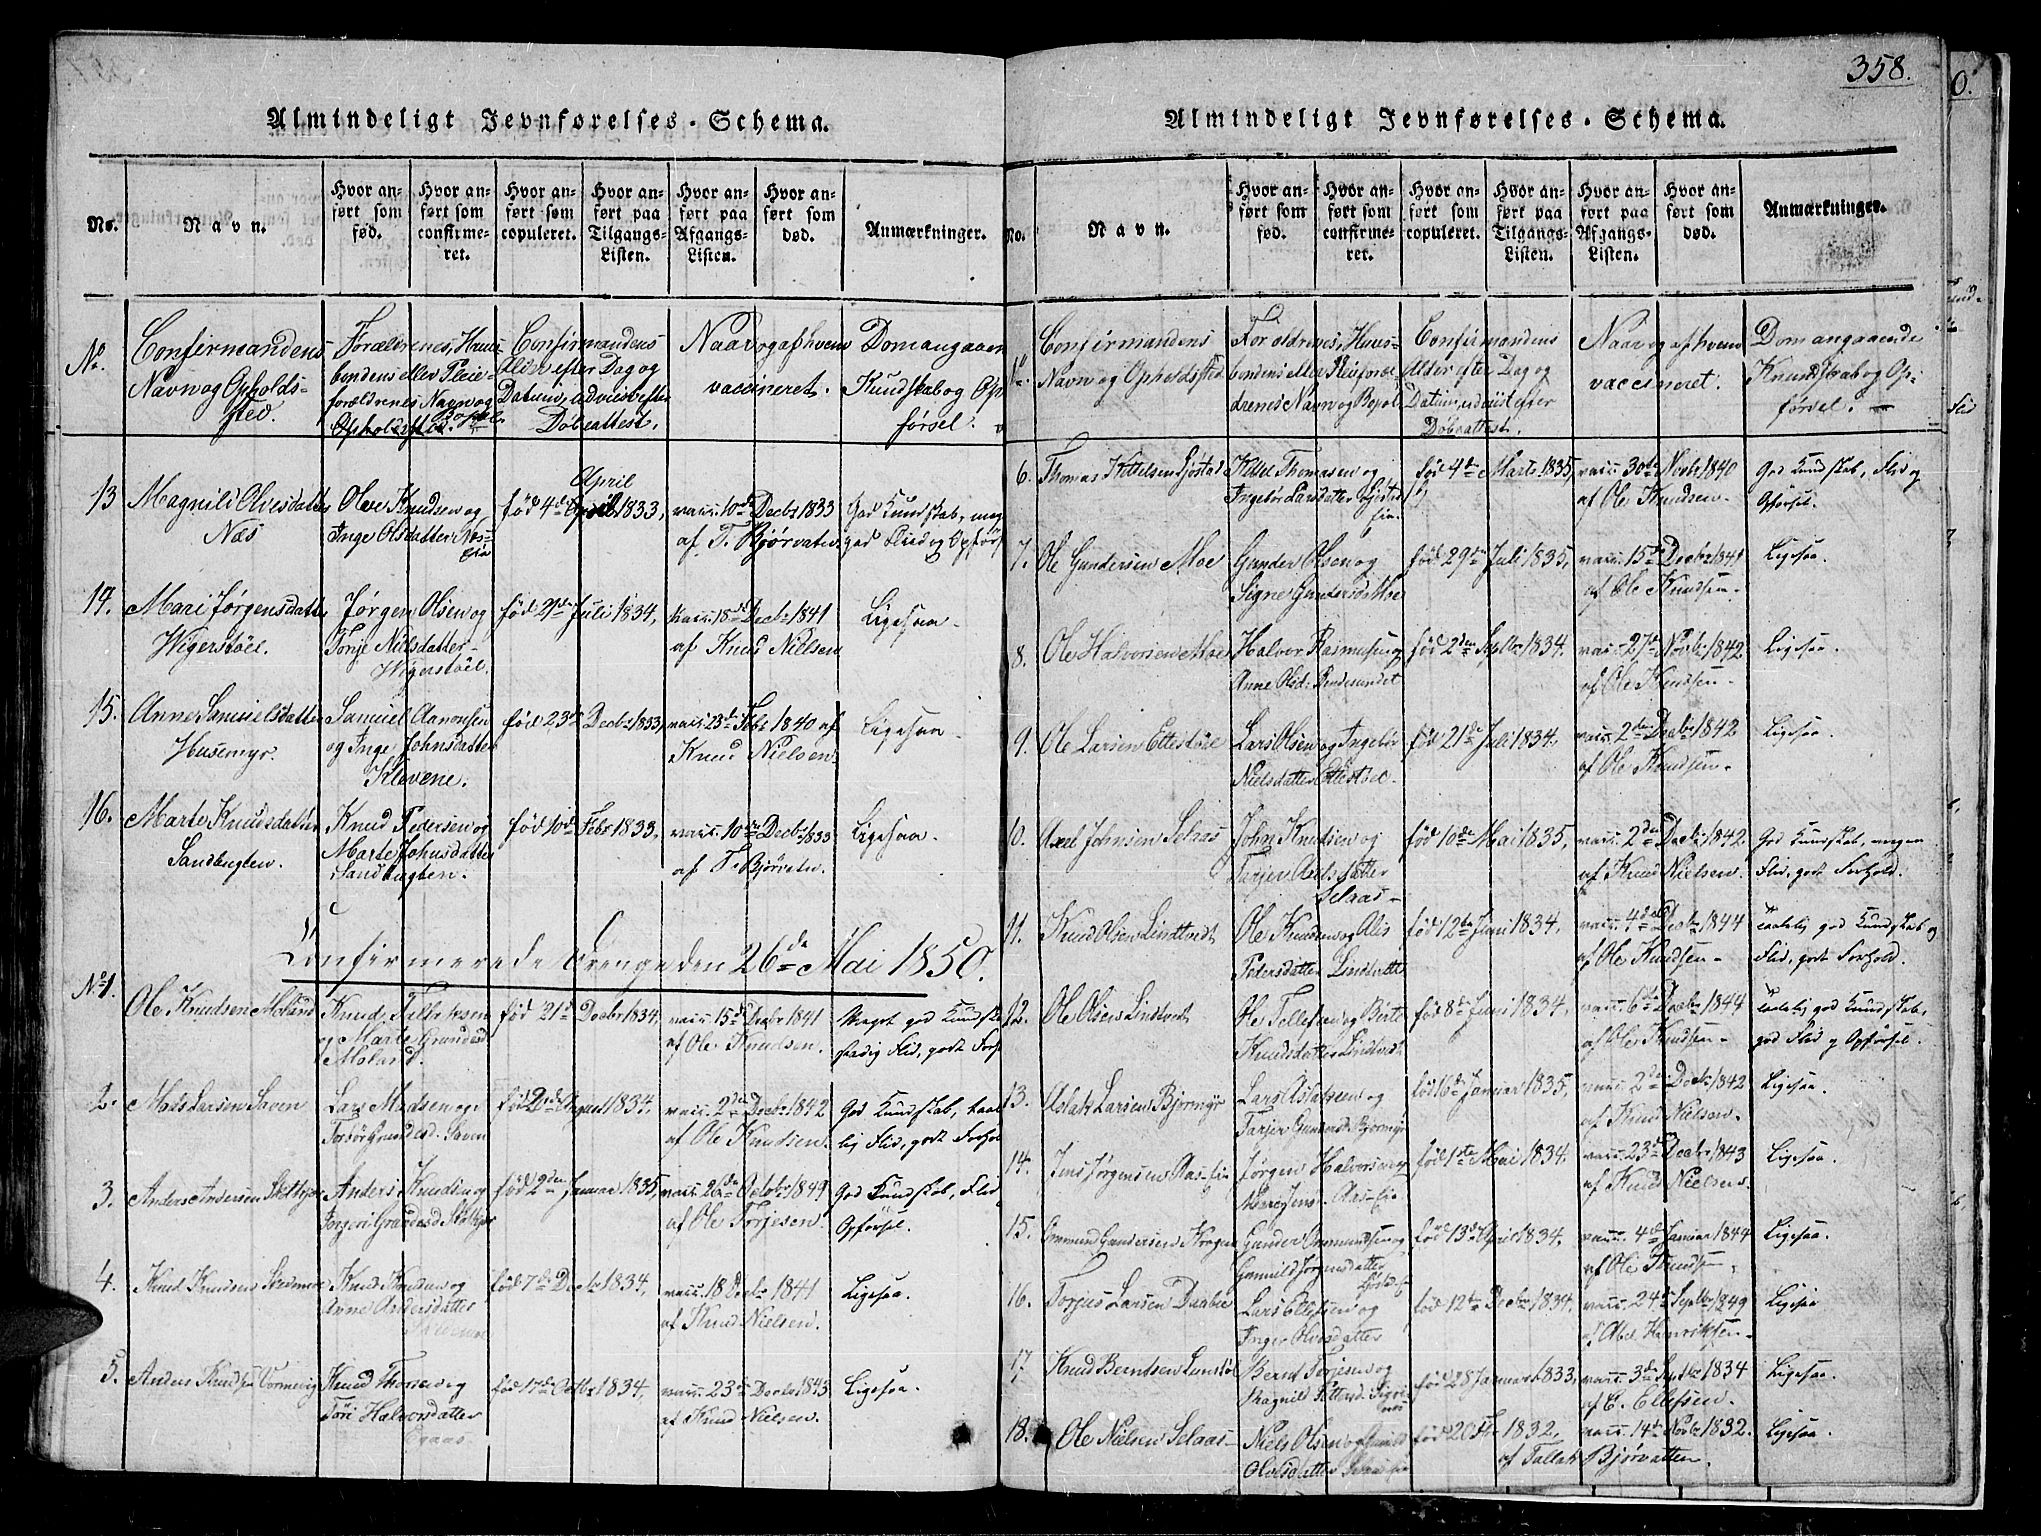 358.
Almindeligt Jevnførelses-Schema.
No.
Navn.
Hvor an-
ført som
fød.
Hvor an-
ført som
confirme-
ret.
Hvor an-
ført som
copuleret.
Hvor an-
ført paa
Tilgangs-
Listen.
Hvor an-
ført paa
Afgangs-
Listen.
Hvor an-
ført som
død.
Anmærkninger.
No.
Confirmandens
Navn og Opholds-
sted.
Forældrenes, Huus-
bondens eller Pleie-
forældrenes Navn og
Opholdssted. Bopæl.
Confirmandens
Alder efter Dag og
Datum, udviist efter
Døbeattest.
Naar og af hvem
vaccineret.
Dom angaaen
Kundskab og Op
førsel.
13
Magnild Olvesdatter
Næs
Olve Knudsen og
Inge Olsdatter Næs-
Eie
April
fød 4de April 1833,
vacc. 10de Decbr 1833
af T. Bjørvatn.
God Kundskab, meg
god Flid og Opførs
14.
Mari Jørgensdatter
Wigerstøel.
Jørgen Olsen og
Tonje Nielsdatter
Wigerstøel.
fød 21de Juli 1834,
vacc. 18de Decbr 1841
af Knud Nielsen
Ligesaa.
15.
Anne Samuelsdatter
Husemyr.
Samuel Aanonsen
og Inge Johnsdatter
Klevene.
fød 23de Decbr 1833,
vacc. 23de Febr 1840 af
Knud Nielsen.
Ligesaa.
16.
Marte Knudsdatter
Sandbugten.
Knud Pedersen og
Marte Johnsdatter
Sandbugten.
fød 10de Febr 1833,
vacc. 10de Decbr 1833
af T. Bjørvatn.
Ligesaa.
Confirmerede Drenge den 26de Mai 1850.
No 1.
Ole Knudsen Moland
Knud Tallaksen
og Marte Gundersd
Moland.
fød 21de Decbr 1834,
vacc. 15de Decbr 1841
af Ole Knudsen.
Meget god Kundska
stadig Flid, godt Forh
2.
Mads Larsen Saven
Lars Madsen og
Torbør Gundersd. Saven
fød 2de August 1834,
vacc. 2den Decbr 1842
af Ole Knudsen.
God Kundskab, taale
lig Flid, godt Forhol
3.
Anders Andersen
Anders Knudsen og
fød 2den Januar 1835,
vacc. 26de Octobr 1849
af Ole Torjesen.
God Kundskab, Flid,
Opførsel.
4.
Knud Knudsen
Knud Knudsen og
Anne Andersdatter
fød 7de Decbr 1834,
vacc. 18 Decbr 1841
af Knud Nielsen.
Ligesaa.
5.
Anders Knudsen
Knud Thorsen og
Tøri Halvorsdatter
Egaas
fød 17de Octbr 1834,
vacc. 23de Decbr 1843
af Knud Nielsen.
Ligesaa.
Almindeligt Jevnførelses-Schema.
No.
Navn.
Hvor an-
ført som
fød.
Hvor an-
ført som
confirme-
ret.
Hvor an-
ført som
copuleret.
Hvor an-
ført paa
Tilgangs-
Listen.
Hvor an-
ført paa
Afgangs-
Listen.
Hvor an-
ført som
død.
Anmærkninger.
Confirmandens
Navn og Opholdsted.
Forældrenes, Huus-
bondens eller Pleieforæl-
drenes Navn og Bopæl
Confirmandens
Alder efter Dag og
Datum, udviist efter
Døbeattest.
Naar og af hvem
vaccineret.
Dom angaaende
Kundskab og Op-
førsel.
6.
Thomas Kittelsen Gjestad
Kittel Thomasen og
Ingebør Larsdatter Gjestad
Eie.
fød 4de Marts 1835,
vacc. 30te Novbr 1840
af Ole Knudsen.
God Kundskab, Flid og
Opførsel.
7.
Ole Gundersen Moe
Gunder Olsen og
Signe Gundersd Moe
fød 29de Juli 1835,
vacc. 15de Decbr 1841
af Ole Knudsen.
Ligesaa.
8.
Ole Halvorsen Moe
Halvor Rasmusen og
Anne Olsd. Rendesundet
fød 2den Septbr 1834,
vacc. 27de Novbr 1842
af Ole Knudsen
Ligesaa.
9.
Ole Larsen Ettestøel
Lars Olsen og Ingebør
Nielsdatter Ettestøel.
fød 21de Juli 1834,
vacc. 2den Decbr 1842
af Ole Knudsen.
Ligesaa.
10.
Axel Johnsen Selaas
John Knudsen og
Tarjer Axelsdatter
Selaas
fød 10de Mai 1835,
vacc. 2den Decbr 1842
af Knud Nielsen.
God Kundskab, megen
Flid, godt Forhold.
11.
Knud Olsen Lindtvedt
Ole Knudsen og Alis
Pedersdatter Lindtvedt
fød 12te Juni 1834,
vacc. 4de Decbr 1844
af Ole Knudsen
Taalelig god Kundskab og
Flid, godt Forhold.
12.
Ole Olsen Lindtvedt
Ole Tellefsen og Berte
Knudsdatter Lindtvedt
fød 8de Juni 1834,
vacc. 6te Decbr 1844
af Ole Knudsen
Taalelig god Kundskab,
god Flid og Opførsel.
13.
Aslak Larsen Bjormyr
Lars Aslaksen og
Tarjer Gundersd. Bjormyr
fød 16de Januar 1835,
vacc. 2den Decbr 1842
af Knud Nielsen.
Ligesaa.
14.
Jens Jørgensen Aas-Eie
Jørgen Halvorsen og
Aas-Eie
fød 1ste Mai 1834.
vacc. 23de Decbr 1843
af Knud Nielsen.
Ligesaa.
15.
Ommund Gundersen
Gunder Ommundsen og
Gunnild Jørgensdatter
fød 13de April 1834.
vacc. 4de Januar 1844
af Ole Knudsen.
Ligesaa.
16.
Torjus Larsen Daabu
Lars Ellefsen og
Inger Olvesdatter
fød 12te Decbr 1834,
vacc. 24de Septbr 1849
af Abel Henriksen.
Ligesaa
17
Knud Berntsen
Bernt Torjesen og
fød 28 Januar 1833,
vacc. 3de Septbr 1834
af E. Ellefsen.
Ligesaa.
18.
Ole Nielsen Selaas
Niels Olsen og Gunild
Olvesdatter
fød 20 1832,
vacc. 14de Novbr 1832.
af Tallak Bjørvatten.
Ligesaa.